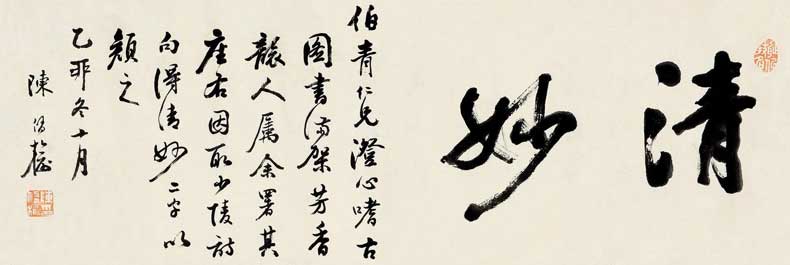 清妙
伯青仁兄澄心嗜古
圖書滿架芳香
襲人屬余署其
座右因取少陵詩
句得清妙二字以
顏之
乙卯冬十月
陳